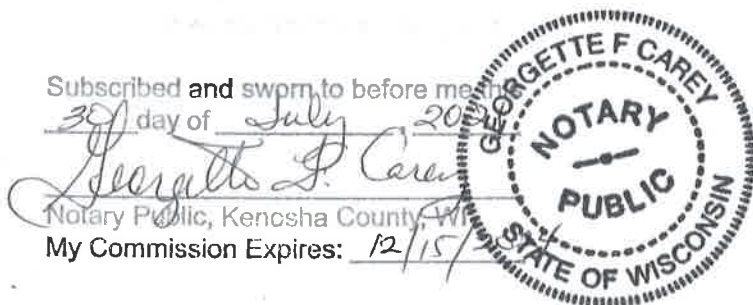 Subscribed and sworn to before me
30 day of July
Georgette F. Carey
Notary Public, Kenosha County, WI
My Commission Expires: 12/15/
GEORGETTE F CAREY
NOTARY
PUBLIC
STATE OF WISCONSIN